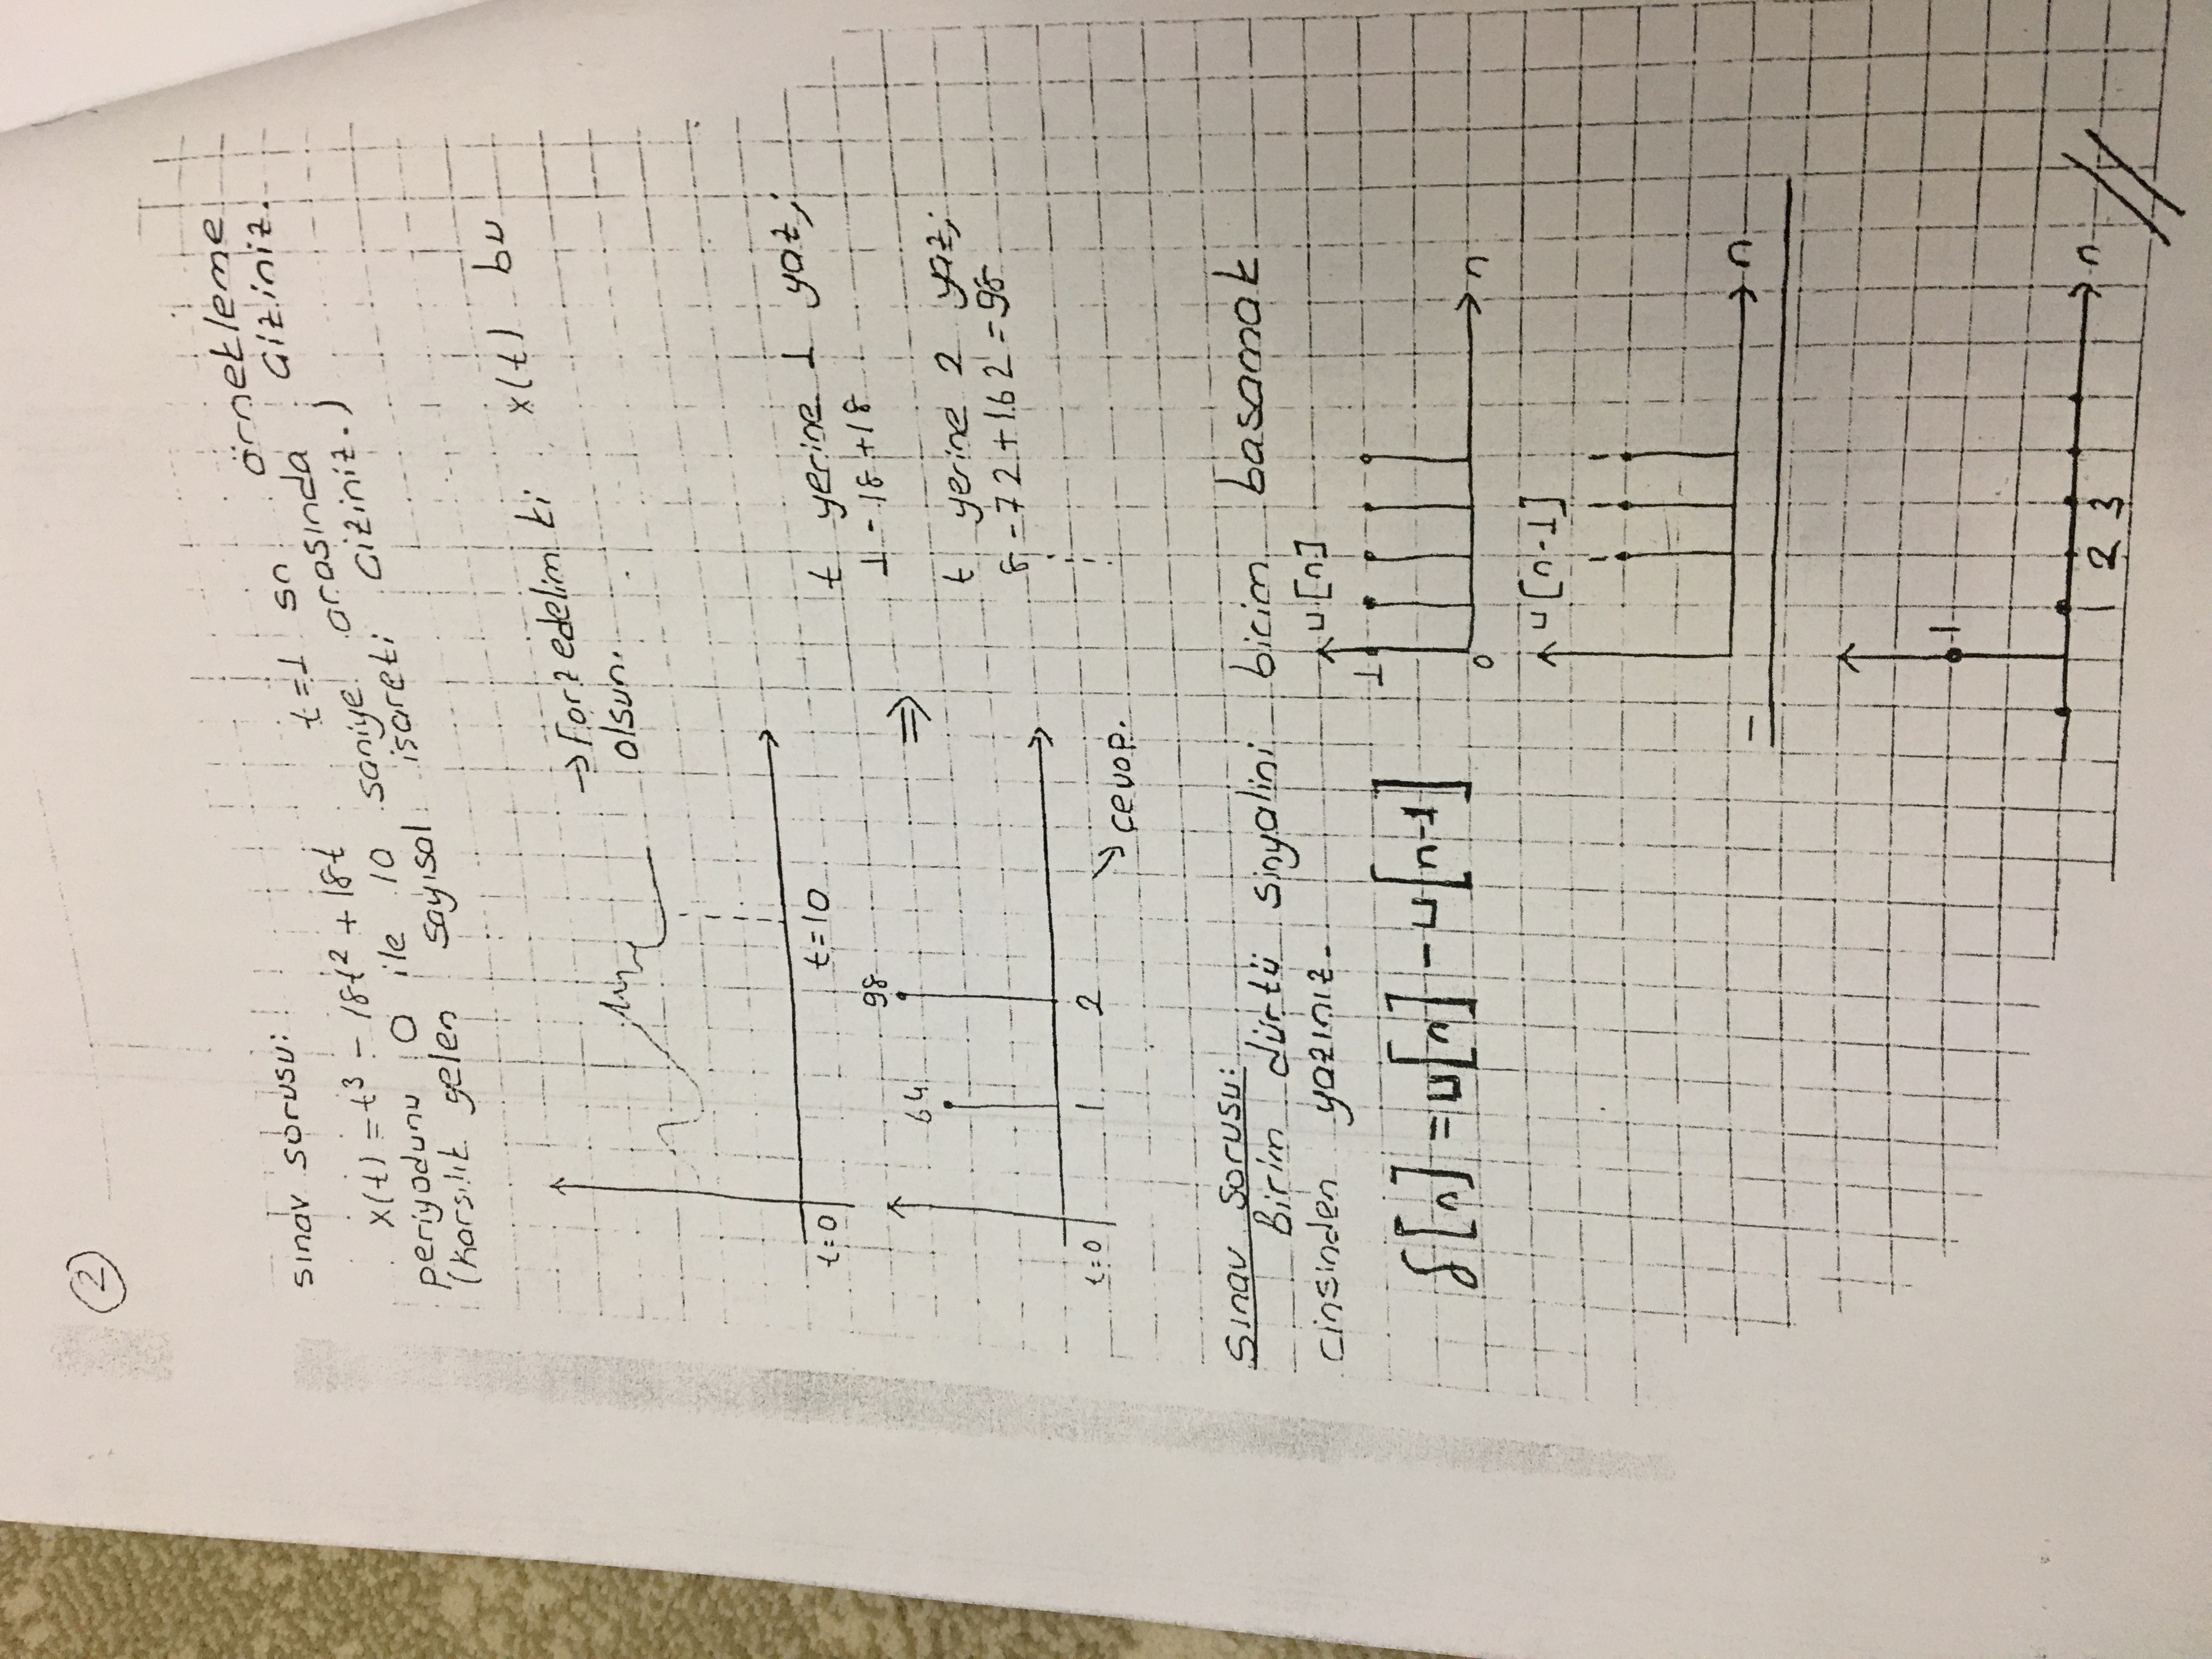 2
sınav sorusu:
x(t) = t³ - 18t² + 18t t=1 sn örnekleme
periyodunu 0 ile 10 saniye arasında çiziniz.
(karşılık gelen sayısal işareti çiziniz.)
→ Farzedelim ki x(t) bu
olsun.
t=0 t=10
t yerine 1 yaz;
1 - 18 + 18
64 98 ⇒
t yerine 2 yaz;
8 - 72 + 162 = 98
t=0 1 2
↘ cevap.
Sınav sorusu:
Birim dürtü sinyalini bicim basamak
cinsinden yazınız.
δ[n] = u[n] - u[n-1]
u[n]
1
0 n
u[n-1]
n
-
1
1 2 3 n